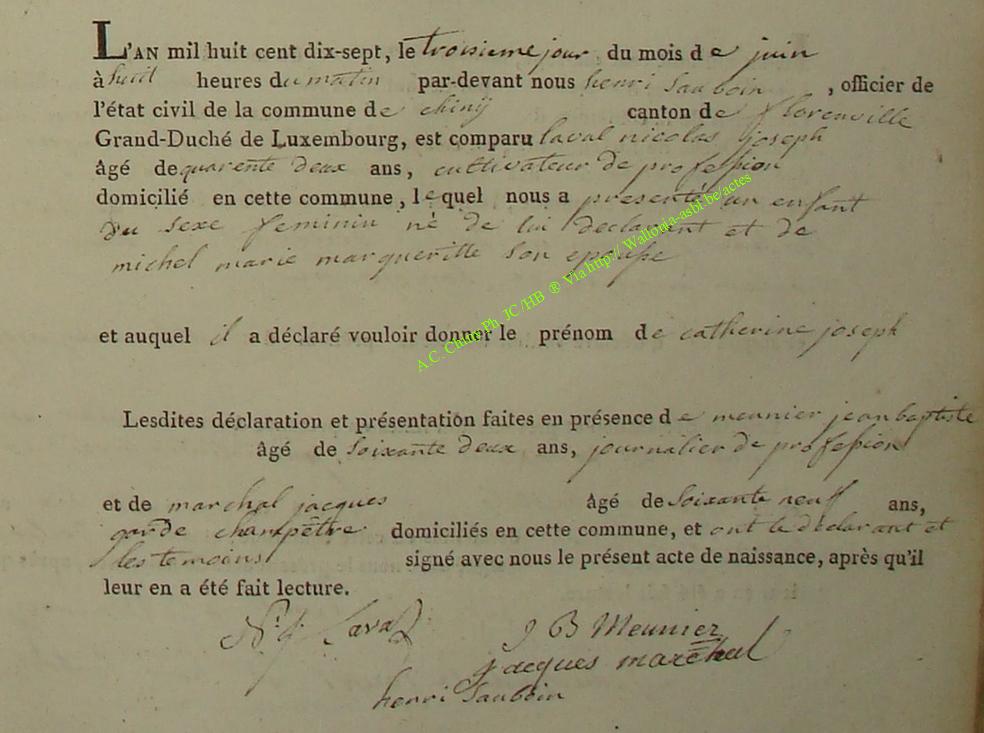 L'AN mil huit cent dix-sept, le troisieme jour du mois de juin
à huit heures du matin par-devant nous henri Sauboin, officier de
l'état civil de la commune de chinÿ canton de florenville
Grand-Duché de Luxembourg, est comparu laval nicolas joseph
âgé de quarente deux ans, cultivateur de profession
domicilié en cette commune, lequel nous a presenté un enfant
du sexe feminin né de lui declarant et de
michel marie margueritte son epousse
et auquel il a déclaré vouloir donner le prénom de catherine joseph
Lesdites déclaration et présentation faites en présence de meunier jean baptiste
âgé de soixante deux ans, journalier de profession
et de marchal jacques âgé de soixante neuf ans,
garde champêtre domiciliés en cette commune, et ont le declarant et
les temoins signé avec nous le présent acte de naissance, après qu'il
leur en a été fait lecture.
N. j. Laval J B Meunier
jacques marechal
henri Sauboin
A.C. Chiny Ph. JC /HB ® Via http:// Wallonia-asbl.be/actes